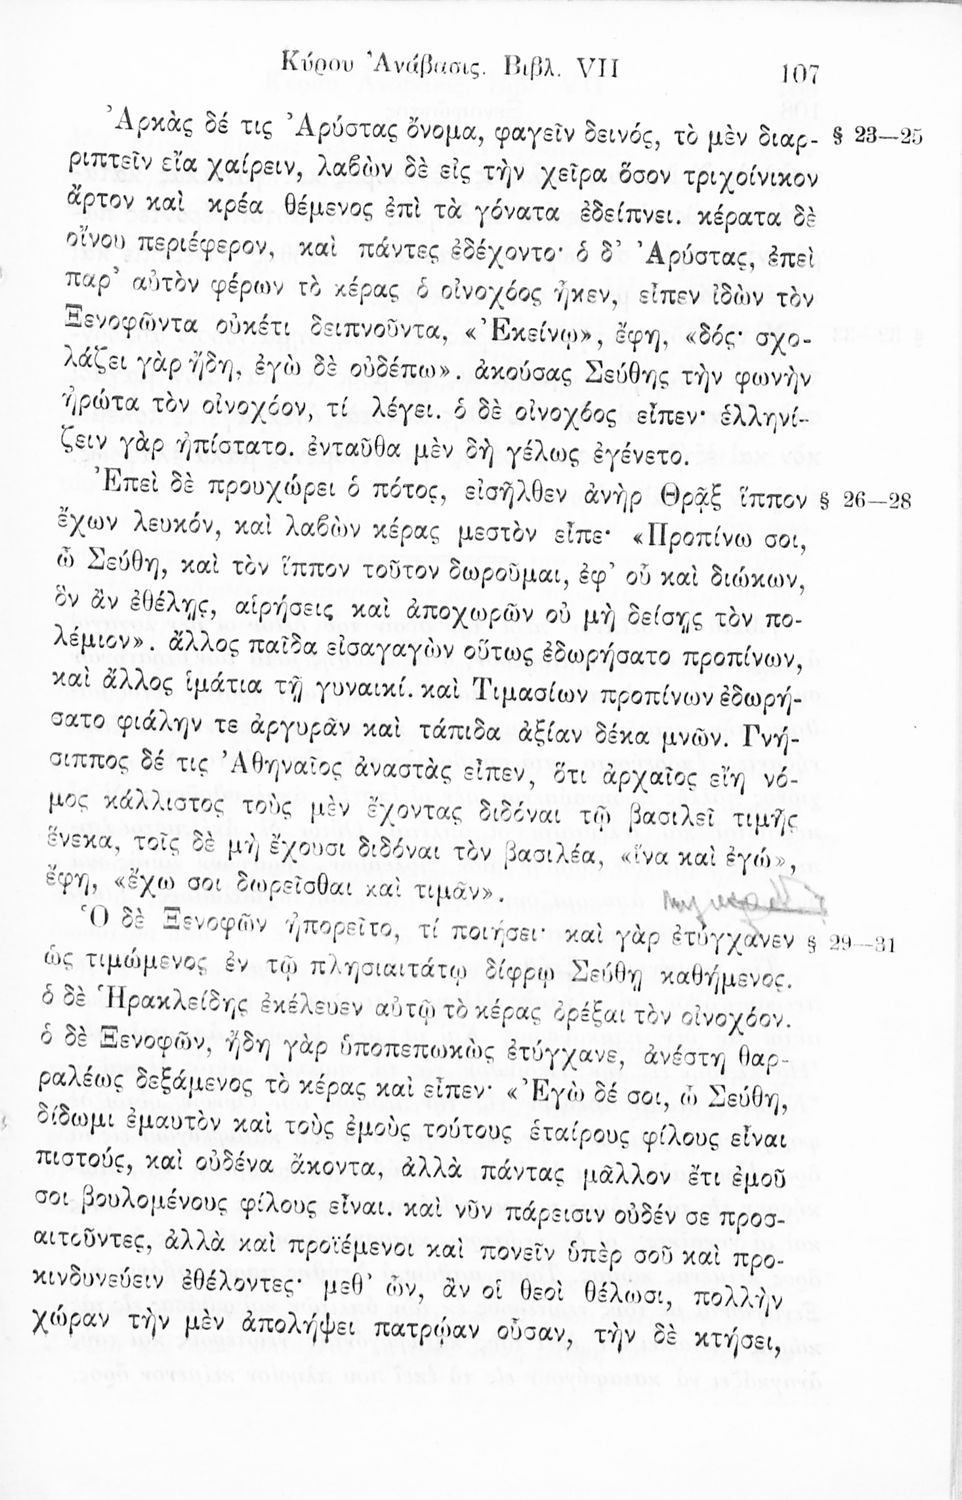 Κύρου Ἀνάβασις. Βιβλ. VII 107
Ἀρκὰς δέ τις Ἀρύστας ὄνομα, φαγεῖν δεινός, τὸ μὲν διαρ- § 23—25
ριπτεῖν εἴα χαίρειν, λαβὼν δὲ εἰς τὴν χεῖρα ὅσον τριχοίνικον
ἄρτον καὶ κρέα θέμενος ἐπὶ τὰ γόνατα ἐδείπνει. κέρατα δὲ
οἴνου περιέφερον, καὶ πάντες ἐδέχοντο· ὁ δ' Ἀρύστας, ἐπεὶ
παρ' αὐτὸν φέρων τὸ κέρας ὁ οἰνοχόος ἧκεν, εἶπεν ἰδὼν τὸν
Ξενοφῶντα οὐκέτι δειπνοῦντα, «Ἐκείνῳ», ἔφη, «δός· σχο-
λάζει γὰρ ἤδη, ἐγὼ δὲ οὐδέπω». ἀκούσας Σεύθης τὴν φωνὴν
ἠρώτα τὸν οἰνοχόον, τί λέγει. ὁ δὲ οἰνοχόος εἶπεν· ἑλληνί-
ζειν γὰρ ἠπίστατο. ἐνταῦθα μὲν δὴ γέλως ἐγένετο.
Ἐπεὶ δὲ προυχώρει ὁ πότος, εἰσῆλθεν ἀνὴρ Θρᾷξ ἵππον § 26—28
ἔχων λευκόν, καὶ λαβὼν κέρας μεστὸν εἶπε· «Προπίνω σοι,
ὦ Σεύθη, καὶ τὸν ἵππον τοῦτον δωροῦμαι, ἐφ' οὗ καὶ διώκων,
ὃν ἂν ἐθέλῃς, αἱρήσεις καὶ ἀποχωρῶν οὐ μὴ δείσῃς τὸν πο-
λέμιον». ἄλλος παῖδα εἰσαγαγὼν οὕτως ἐδωρήσατο προπίνων,
καὶ ἄλλος ἱμάτια τῇ γυναικί. καὶ Τιμασίων προπίνων ἐδωρή-
σατο φιάλην τε ἀργυρᾶν καὶ τάπιδα ἀξίαν δέκα μνῶν. Γνή-
σιππος δέ τις Ἀθηναῖος ἀναστὰς εἶπεν, ὅτι ἀρχαῖος εἴη νό-
μος κάλλιστος τοὺς μὲν ἔχοντας διδόναι τῷ βασιλεῖ τιμῆς
ἕνεκα, τοῖς δὲ μὴ ἔχουσι διδόναι τὸν βασιλέα, «ἵνα καὶ ἐγώ»,
ἔφη, «ἔχω σοι δωρεῖσθαι καὶ τιμᾶν».
Ὁ δὲ Ξενοφῶν ἠπορεῖτο, τί ποιήσει· καὶ γὰρ ἐτύγχανεν § 29—31
ὡς τιμώμενος ἐν τῷ πλησιαιτάτῳ δίφρῳ Σεύθῃ καθήμενος.
ὁ δὲ Ἡρακλείδης ἐκέλευεν αὐτῷ τὸ κέρας ὀρέξαι τὸν οἰνοχόον.
ὁ δὲ Ξενοφῶν, ἤδη γὰρ ὑποπεπωκὼς ἐτύγχανε, ἀνέστη θαρ-
ραλέως δεξάμενος τὸ κέρας καὶ εἶπεν· «Ἐγὼ δέ σοι, ὦ Σεύθη,
δίδωμι ἐμαυτὸν καὶ τοὺς ἐμοὺς τούτους ἑταίρους φίλους εἶναι
πιστούς, καὶ οὐδένα ἄκοντα, ἀλλὰ πάντας μᾶλλον ἔτι ἐμοῦ
σοι βουλομένους φίλους εἶναι. καὶ νῦν πάρεισιν οὐδέν σε προσ-
αιτοῦντες, ἀλλὰ καὶ προϊέμενοι καὶ πονεῖν ὑπὲρ σοῦ καὶ προ-
κινδυνεύειν ἐθέλοντες· μεθ' ὧν, ἂν οἱ θεοὶ θέλωσι, πολλὴν
χώραν τὴν μὲν ἀπολήψει πατρῴαν οὖσαν, τὴν δὲ κτήσει,